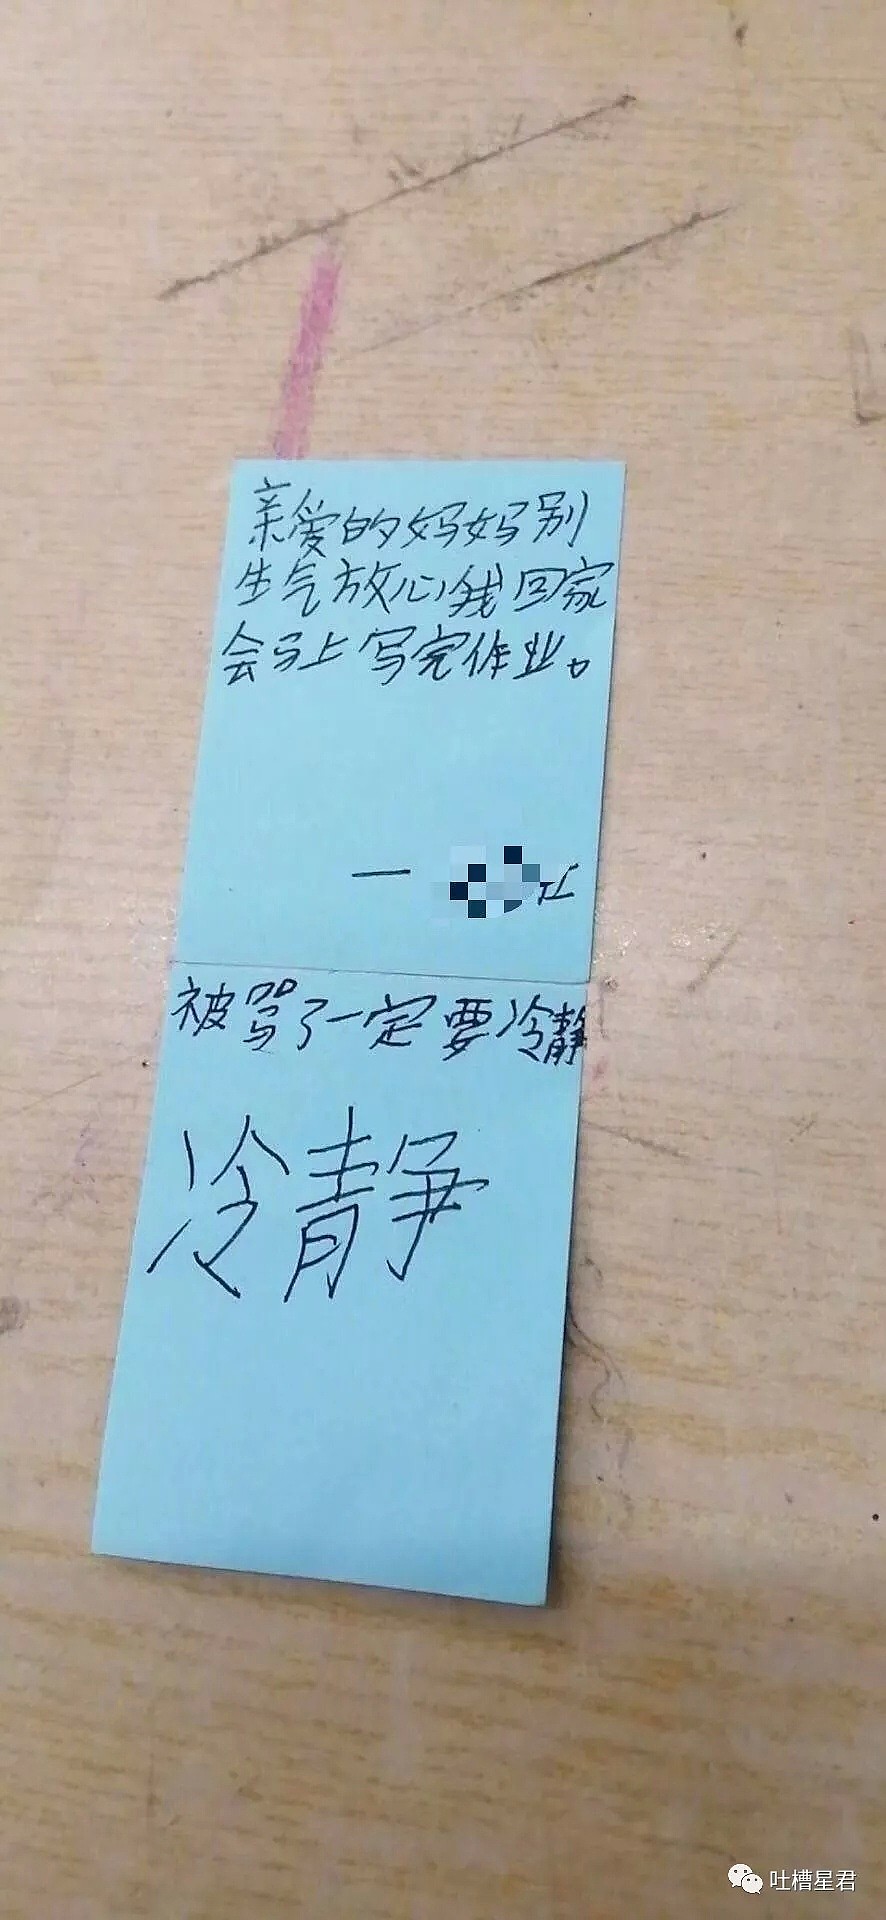 亲爱的妈妈别
生气放心我回家
会马上写完作业。
一
被骂了一定要冷静
冷静
吐槽星君